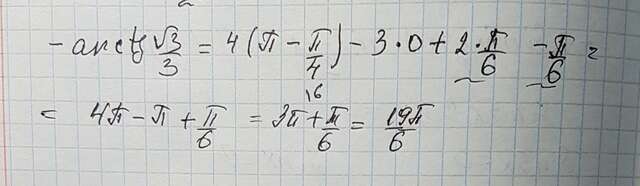 - arctg √3/3 = 4(π - π/4) - 3·0 + 2·π/6 - π/6 =
= 4π - π + π/6 = 3π + π/6 = 19π/6